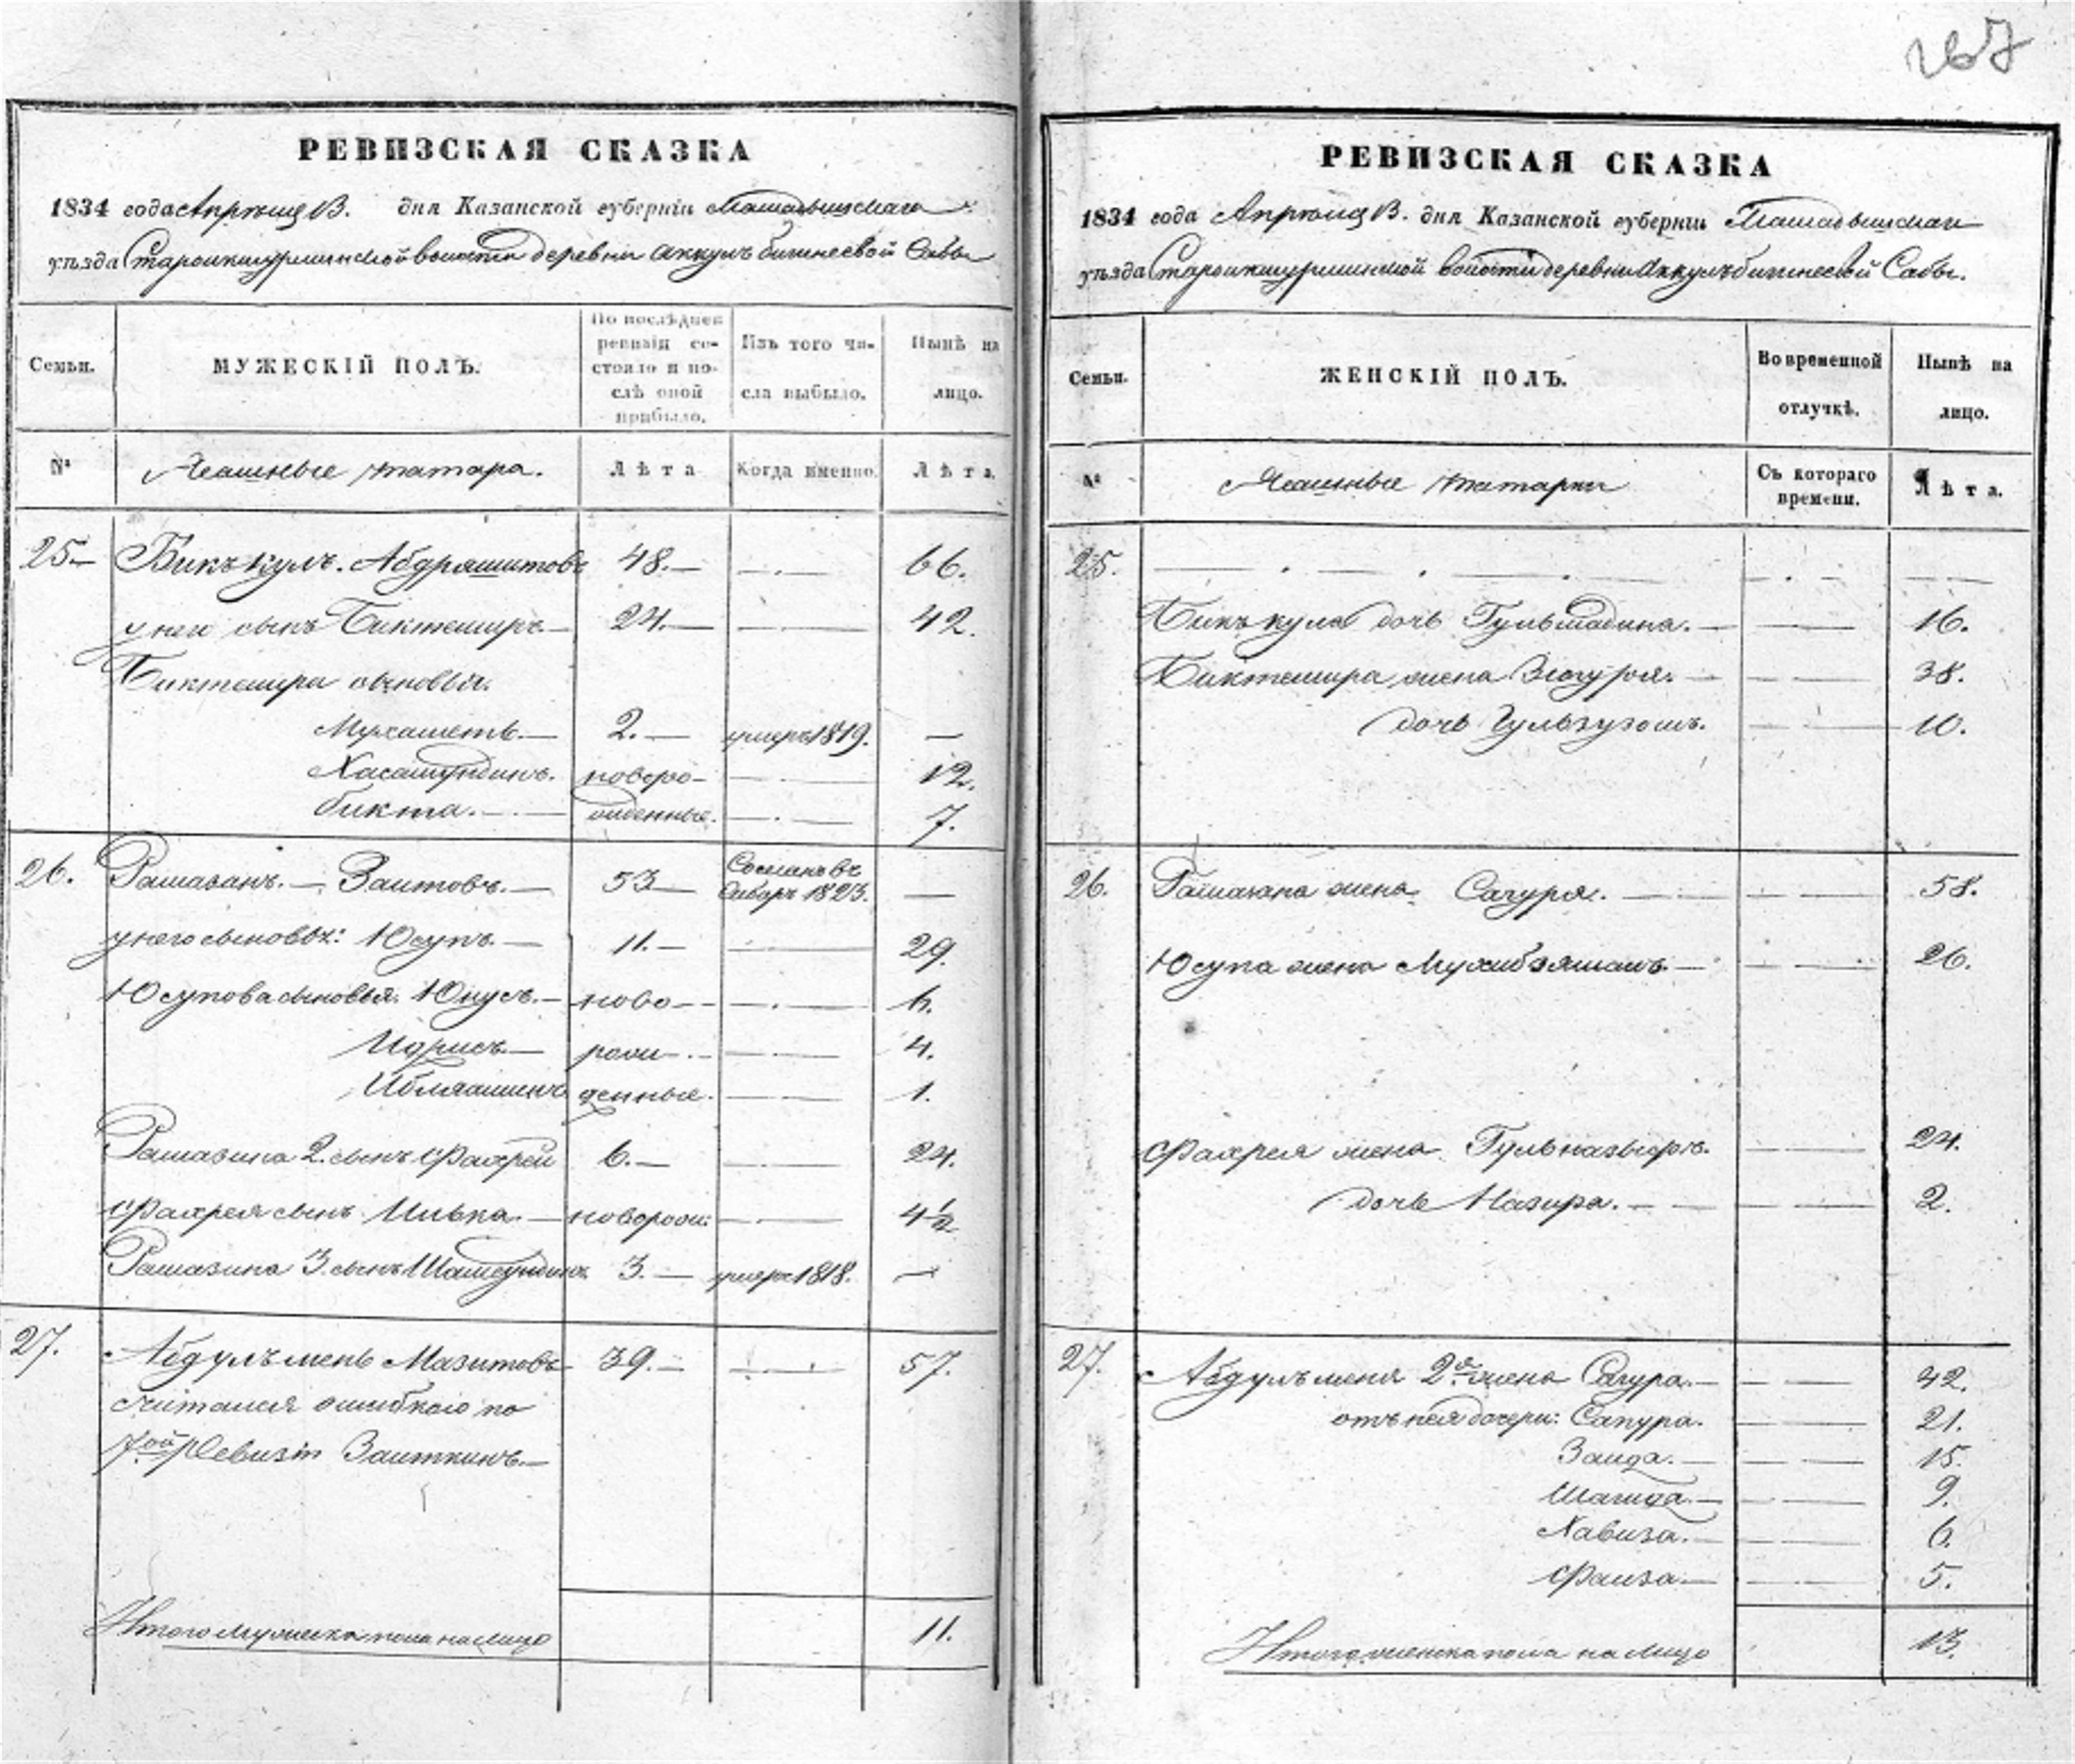 267
РЕВИЗСКАЯ СКАЗКА
1834 года Апреля 13. дня Казанской губерніи Мамадышскаго
уѣзда Староикшурминской волости деревни Аккулъ бигиневой Сабы
Семьи.
МУЖЕСКІЙ ПОЛЪ.
По послѣдней ревизіи состояло и послѣ оной прибыло.
Изъ того числа выбыло.
Нынѣ на лицо.
№
Ясашные татара.
Лѣта
Когда именно.
Лѣта.
25.— Бикъкулъ. Абдряшитовъ 48.— —.— 66.
у него сынъ Биктемиръ— 24.— —.— 42.
Биктемира сыновья.
Мухаметъ.— 2.— умеръ 1819. —
Хасамундинъ. новоро- —.— 12.
бикта.— ожденные. —.— 7.
26. Рамазанъ.— Заитовъ.— 53— Сосланъ въ Сибирь 1823. —
у него сыновья: Юсупъ.— 11.— — 29.
Юсупова сыновья. Юнусъ.— ново— —.— 6.
Идрисъ.— рож-.- — 4.
Ибляаминъ денные. — 1.
Рамазана 2. сынъ Фахрей 6.— —.— 24.
Фахрея сынъ Минька.— новорож: —.— 4½
Рамазана 3. сынъ Шамсундинъ 3.— умеръ 1818. —
27. Абдулъменъ Мазитовъ 39.— —.— 57.
считался ошибкою по
7ой Ревизіи Заиткинъ.—
Итого мужеска пола на лицо 11.
РЕВИЗСКАЯ СКАЗКА
1834 года Апреля 13. дня Казанской губерніи Мамадышскаго
уѣзда Староикшурминской волости деревни Аккулъбигиневой Сабы.
Семьи.
ЖЕНСКІЙ ПОЛЪ.
Во временной отлучкѣ.
Нынѣ на лицо.
№
Ясашные татарки
Съ котораго времени.
Лѣта.
25. — . — . — . — . — —
Бикъкула дочь Гульшадина.— — 16.
Биктемира жена Зюгуря.— — 38.
дочь Гульзузямъ. — 10.
26. Рамазана жена Сагуря.— — 58.
Юсупа жена Мухибзямалъ.— — 26.
Фахрея жена Гульназыфъ. — 24.
дочь Назира.— — 2.
27. Абдулъменя 2я жена Сагура.— — 42.
отъ нея дочери: Сапура. — 21.
Заида.— — 15.
Шагида.— — 9.
Хавиза.— — 6.
Фаиза— — 5.
Итого женска пола на лицо 13.